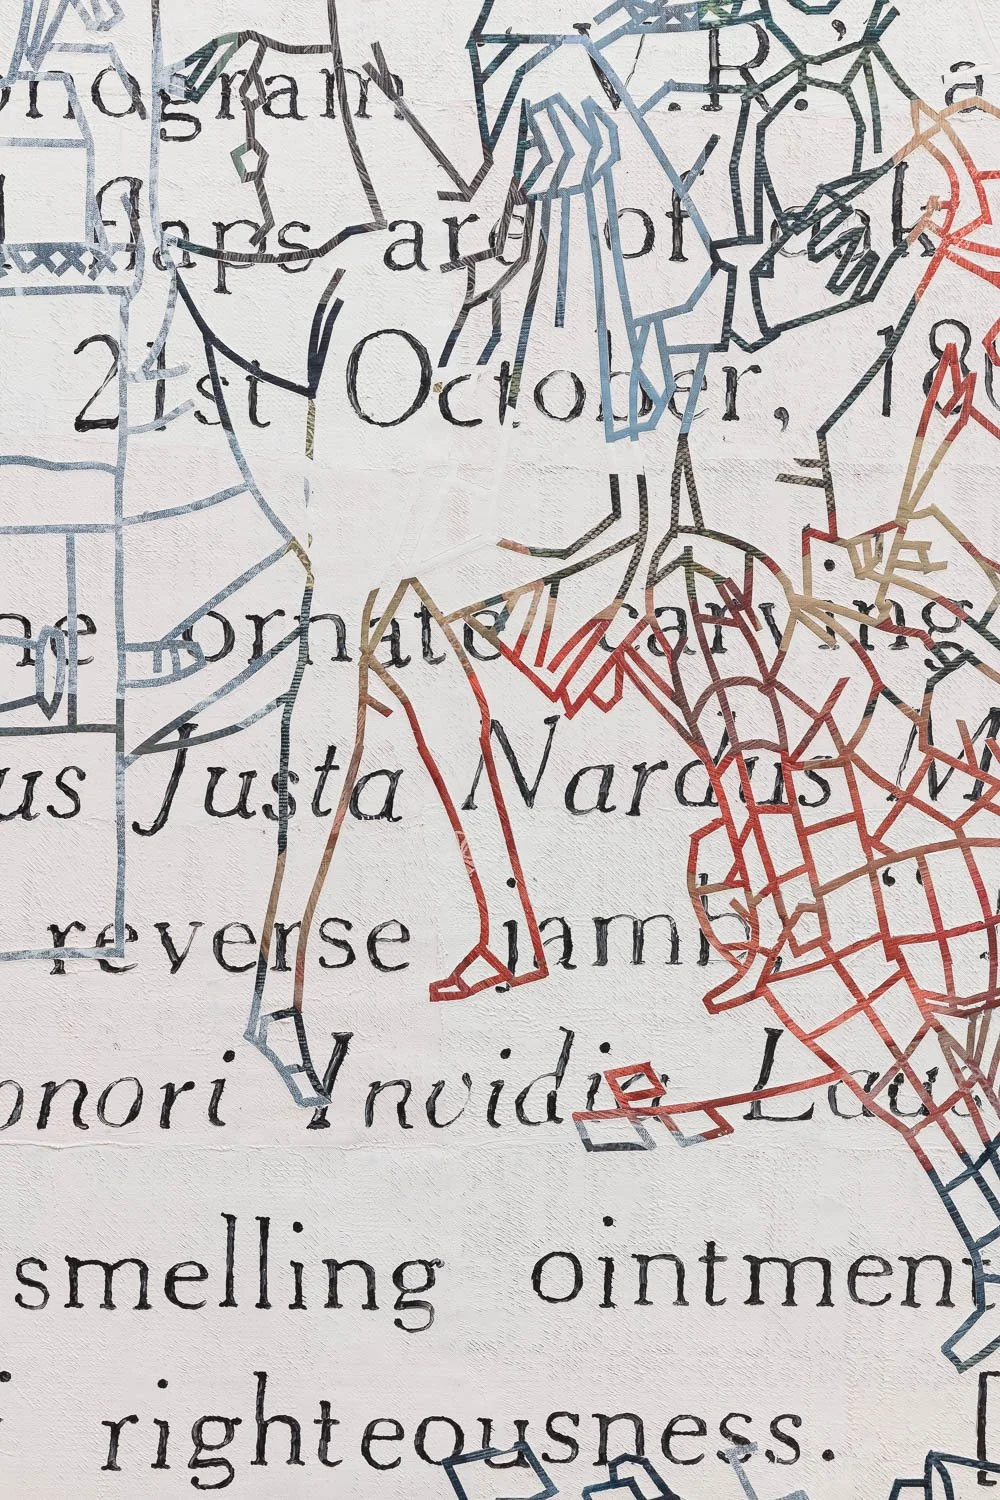 onogram .R.', a
flaps are of oak
21st October, 18
ne ornate carving
us Justa Nardus M
reverse jamb, ‘
onori Invidia Laus
smelling ointment
righteousness. [